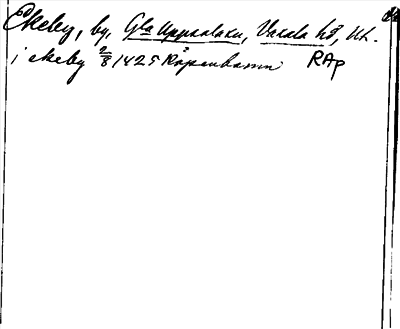 Ekeby, by, Gla Uppsala sn, Vaksala hd, Upl.
i ekeby 2/8 1425 Köpenhamn RAp